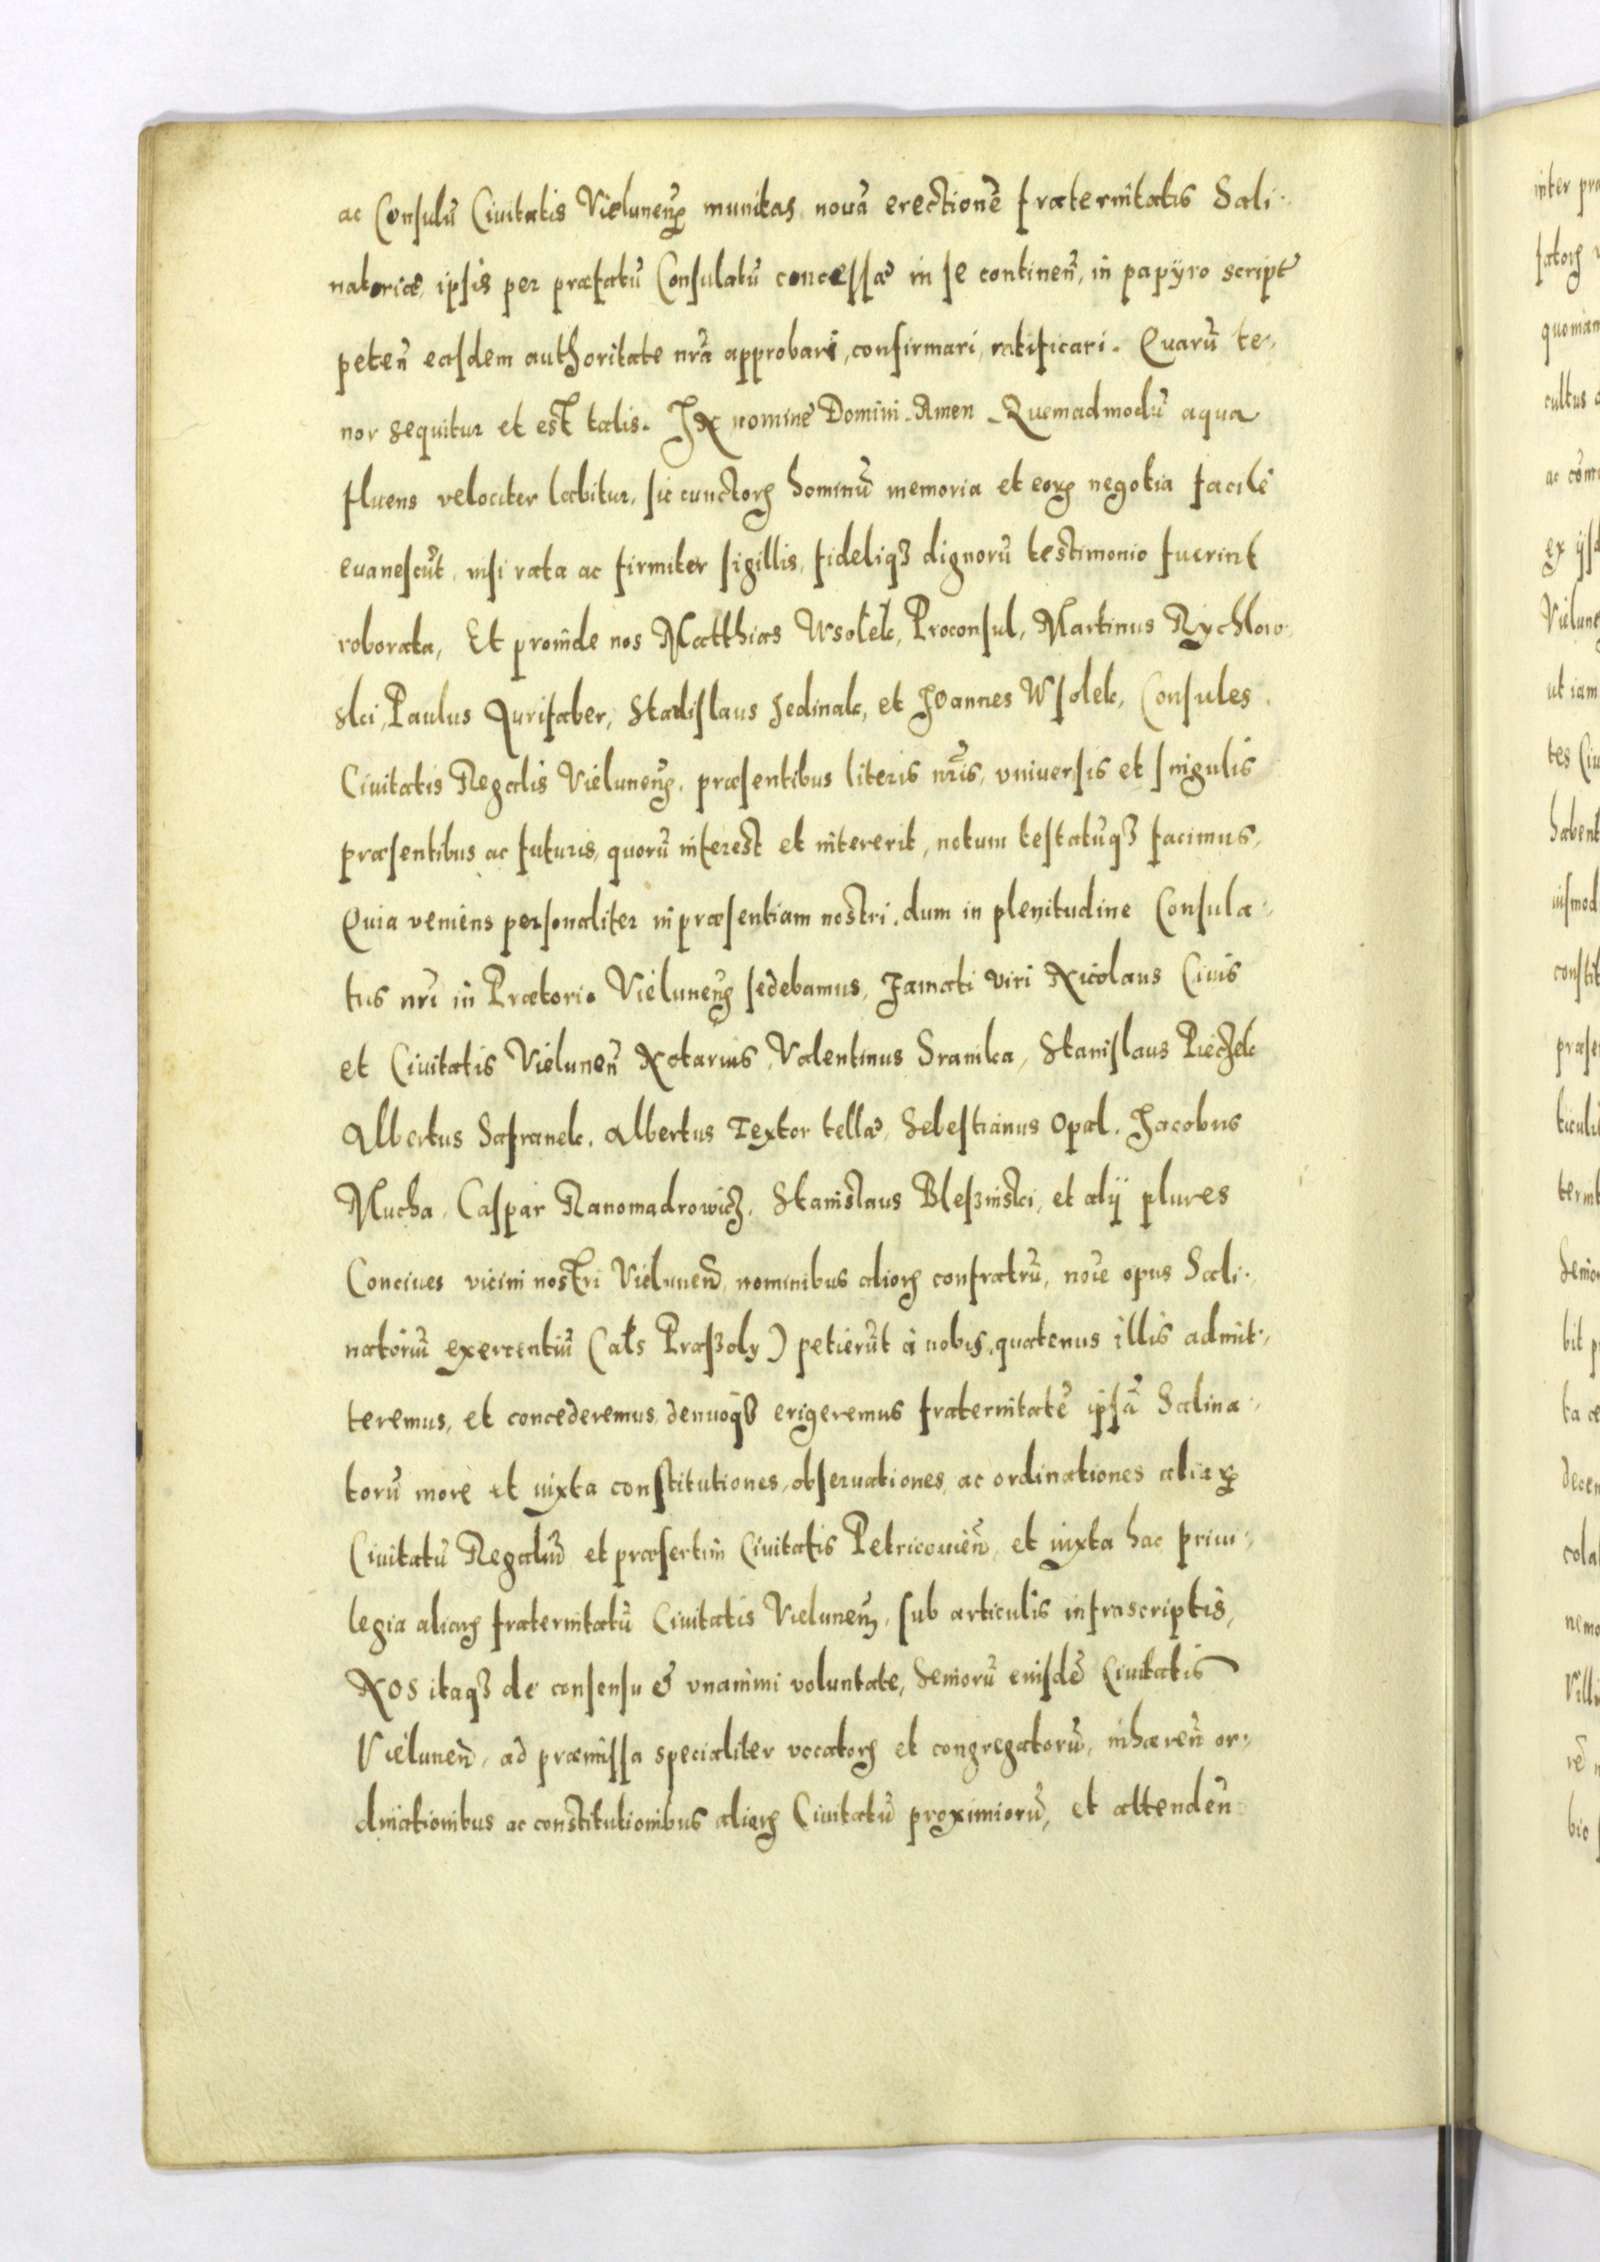 ac Consulū Civitatis Vieluneñ munitas, novā erectionē fraternitatis Sali-
natoriæ, ipsis per præfatū Consulatū concessæ in se continen̄, in papÿro script
peten̄ easdem authoritate nr̄a approbari, confirmari, ratificari. Quarū te-
nor sequitur et est talis. IN nomine Domini. Amen. Quemadmodū aqua
fluens velociter labitur, sic cunctoꝝ hominū memoria et eoꝝ negotia facile
evanescūt, nisi rata ac firmiter sigillis, fideliqꝫ dignorū testimonio fuerint
roborata, Et proinde nos Matthias Wsolek, Proconsul, Martinus Rychlow-
ski, Paulus Aurifaber, Stadislaus Sedinak, et Joannes Wsolek, Consules
Civitatis Regalis Vieluneñ, præsentibus literis nr̄is, vniversis et singulis
præsentibus ac futuris, quorū interest et intererit, notum testatūqꝫ facimus,
Quia veniens personaliter in præsentiam nostri, dum in plenitudine Consula-
tus nr̄i in Prætorio Vieluneñ sedebamus, Famati viri Nicolaus Civis
et Civitatis Vielunen̄ Notarius, Valentinus Sranka, Stanislaus Piechek
Albertus Safranek, Albertus Textor tellæ, Sebestianus Opal, Jacobus
Mucha, Caspar Ranomadrowicz, Stanislaus Bleszinski, et alÿ plures
Concives vicini nostri Vielunen̄, nominibus alioꝝ confratrū, nove opus Sali-
natoriū exercentiū (als Praszoly) petierūt à nobis, quatenus illis admit-
teremus, et concederemus, denuoqꝫ erigeremus fraternitatē ipsā Salina-
torū more et iuxta constitutiones, observationes, ac ordinationes aliaꝝ
Civitatū Regaliū et præsertim Civitatis Petricovien̄, et iuxta hac privi-
legia aliaꝝ fraternitatū Civitatis Vieluneñ, sub articulis infrascriptis,
NOS itaqꝫ de consensu & vnanimi voluntate, Seniorū eiusdē Civitatis
Vielunen̄, ad præmissa specialiter vocatoꝝ et congregatorū, inhæren̄ or-
dinationibus ac constitutionibus aliaꝝ Civitatū proximiorū, et attenden̄